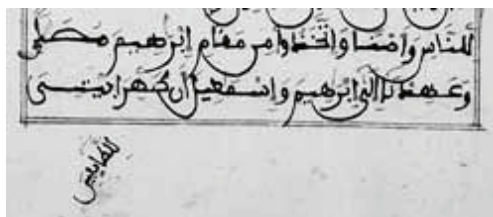 للناس وأمنا واتخذوا من مقام إبرهيم مصلى
وعهدنا إلى إبرهيم وإسمعيل أن طهرا بيتي
للطايفين